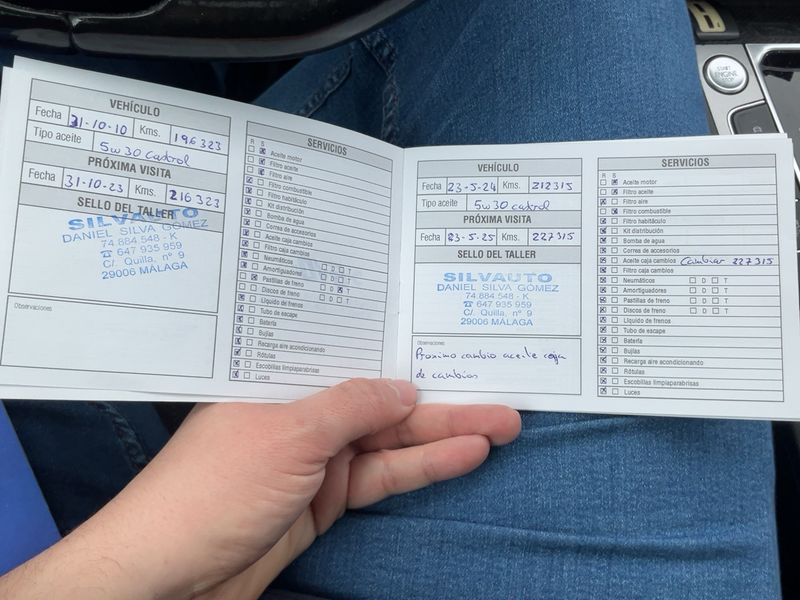 VEHÍCULO
Fecha 31-10-10 Kms. 196323
Tipo aceite 5w30 Castrol
PRÓXIMA VISITA
Fecha 31-10-23 Kms. 216323
SELLO DEL TALLER
SILVAUTO
DANIEL SILVA GÓMEZ
74.884.548 - K
☎ 647 935 959
C/. Quilla, nº 9
29006 MÁLAGA
Observaciones
SERVICIOS
R S
Aceite motor
Filtro aceite
Filtro aire
Filtro combustible
Filtro habitáculo
Kit distribución
Bomba de agua
Correa de accesorios
Aceite caja cambios
Filtro caja cambios
Neumáticos D T
Amortiguadores D T
Pastillas de freno D T
Discos de freno D T
Líquido de frenos
Tubo de escape
Batería
Bujías
Recarga aire acondicionando
Rótulas
Escobillas limpiaparabrisas
Luces
VEHÍCULO
Fecha 23-5-24 Kms. 212315
Tipo aceite 5w30 castrol
PRÓXIMA VISITA
Fecha 23-5-25 Kms. 227315
SELLO DEL TALLER
SILVAUTO
DANIEL SILVA GÓMEZ
74.884.548 - K
☎ 647 935 959
C/. Quilla, nº 9
29006 MÁLAGA
Observaciones
Proximo cambio aceite caja
de cambios
SERVICIOS
R S
Aceite motor
Filtro aceite
Filtro aire
Filtro combustible
Filtro habitáculo
Kit distribución
Bomba de agua
Correa de accesorios
Aceite caja cambios Cambiar 227315
Filtro caja cambios
Neumáticos D T
Amortiguadores D T
Pastillas de freno D T
Discos de freno D T
Líquido de frenos
Tubo de escape
Batería
Bujías
Recarga aire acondicionando
Rótulas
Escobillas limpiaparabrisas
Luces
START
ENGINE
STOP